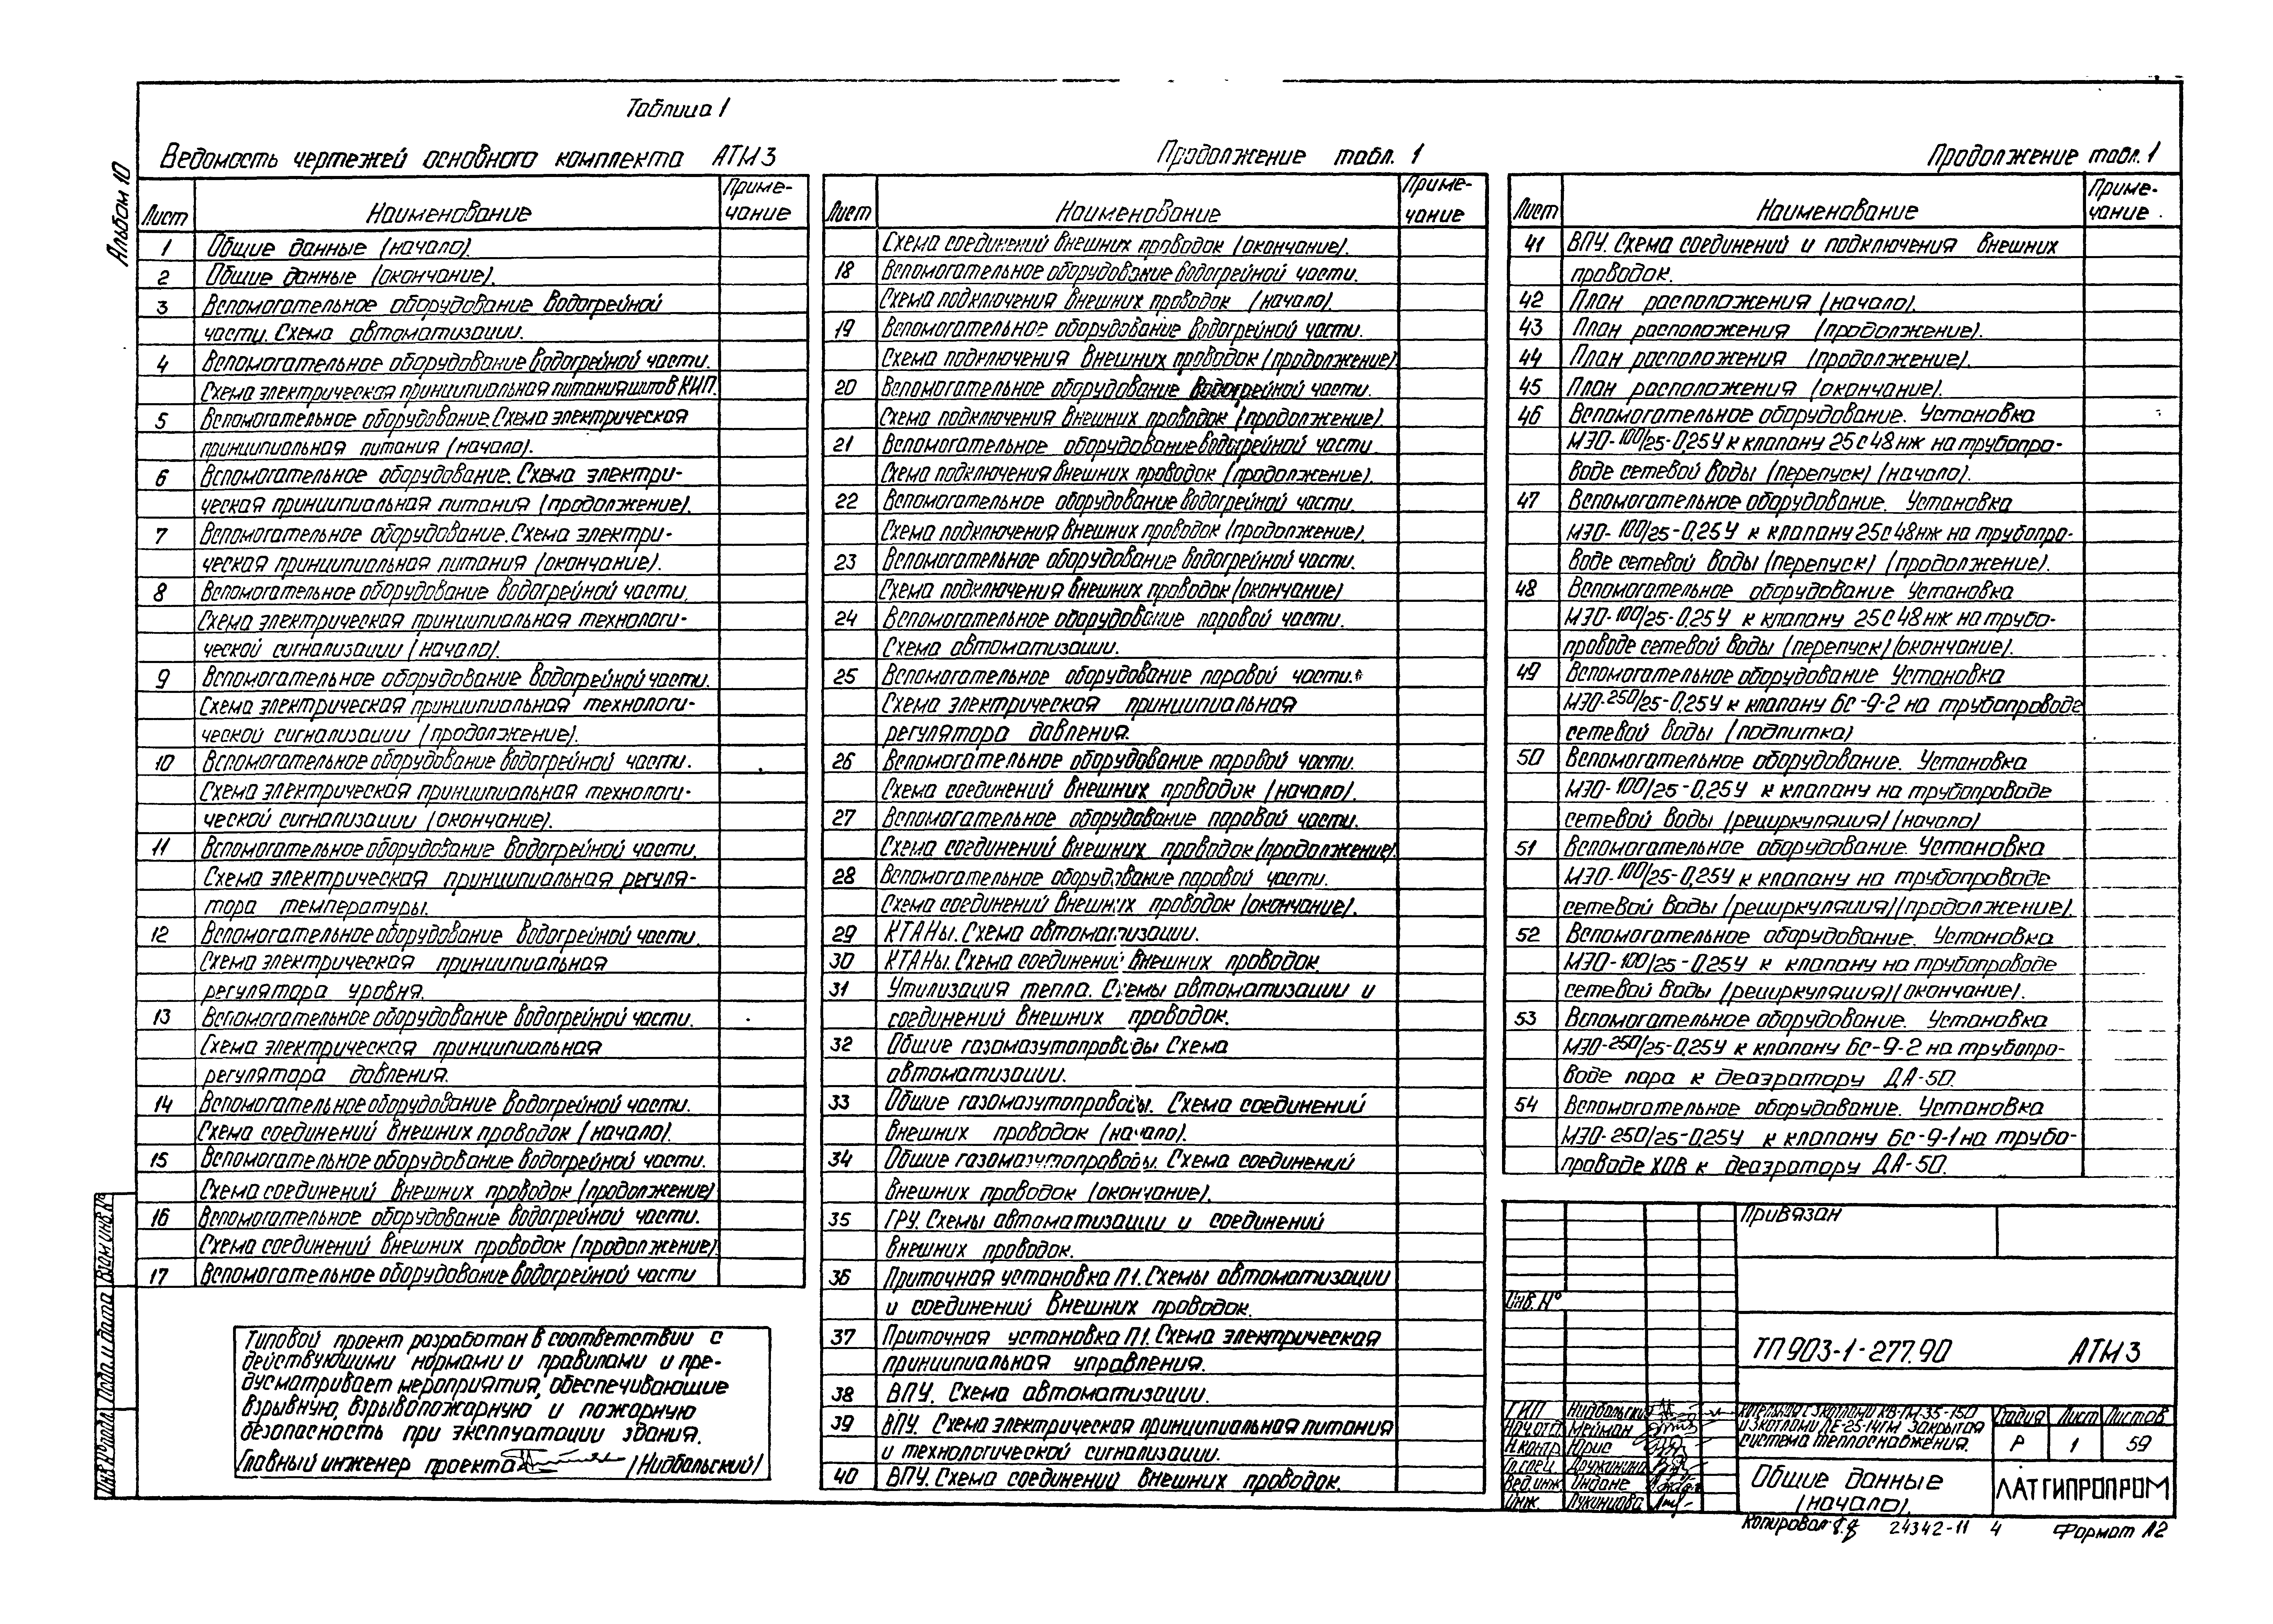 Альбом 10
Таблица 1
Ведомость чертежей основного комплекта АТМ3
Лист Наименование Приме-
чание
1 Общие данные (начало).
2 Общие данные (окончание).
3 Вспомогательное оборудование водогрейной
части. Схема автоматизации.
4 Вспомогательное оборудование водогрейной части.
Схема электрическая принципиальная питания щитов КИП.
5 Вспомогательное оборудование. Схема электрическая
принципиальная питания (начало).
6 Вспомогательное оборудование. Схема электри-
ческая принципиальная питания (продолжение).
7 Вспомогательное оборудование. Схема электри-
ческая принципиальная питания (окончание).
8 Вспомогательное оборудование водогрейной части.
Схема электрическая принципиальная технологи-
ческой сигнализации (начало).
9 Вспомогательное оборудование водогрейной части.
Схема электрическая принципиальная технологи-
ческой сигнализации (продолжение).
10 Вспомогательное оборудование водогрейной части.
Схема электрическая принципиальная технологи-
ческой сигнализации (окончание).
11 Вспомогательное оборудование водогрейной части.
Схема электрическая принципиальная регуля-
тора температуры.
12 Вспомогательное оборудование водогрейной части.
Схема электрическая принципиальная
регулятора уровня.
13 Вспомогательное оборудование водогрейной части.
Схема электрическая принципиальная
регулятора давления.
14 Вспомогательное оборудование водогрейной части.
Схема соединений внешних проводок (начало).
15 Вспомогательное оборудование водогрейной части.
Схема соединений внешних проводок (продолжение)
16 Вспомогательное оборудование водогрейной части.
Схема соединений внешних проводок (продолжение).
17 Вспомогательное оборудование водогрейной части
Типовой проект разработан в соответствии с
действующими нормами и правилами и пре-
дусматривает мероприятия, обеспечивающие
взрывную, взрывопожарную и пожарную
безопасность при эксплуатации здания.
Главный инженер проекта (Нидбальский)
Продолжение табл. 1
Лист Наименование Приме-
чание
Схема соединений внешних проводок (окончание).
18 Вспомогательное оборудование водогрейной части.
Схема подключения внешних проводок (начало).
19 Вспомогательное оборудование водогрейной части.
Схема подключения внешних проводок (продолжение)
20 Вспомогательное оборудование водогрейной части.
Схема подключения внешних проводок (продолжение).
21 Вспомогательное оборудование водогрейной части
Схема подключения внешних проводок (продолжение).
22 Вспомогательное оборудование водогрейной части.
Схема подключения внешних проводок (продолжение).
23 Вспомогательное оборудование водогрейной части.
Схема подключения внешних проводок (окончание)
24 Вспомогательное оборудование паровой части.
Схема автоматизации.
25 Вспомогательное оборудование паровой части.
Схема электрическая принципиальная
регулятора давления.
26 Вспомогательное оборудование паровой части.
Схема соединений внешних проводок (начало).
27 Вспомогательное оборудование паровой части.
Схема соединений внешних проводок (продолжение).
28 Вспомогательное оборудование паровой части.
Схема соединений внешних проводок (окончание).
29 КТАНы. Схема автоматизации.
30 КТАНы. Схема соединений внешних проводок.
31 Утилизация тепла. Схемы автоматизации и
соединений внешних проводок.
32 Общие газомазутопроводы Схема
автоматизации.
33 Общие газомазутопроводы. Схема соединений
внешних проводок (начало).
34 Общие газомазутопроводы. Схема соединений
внешних проводок (окончание).
35 ГРУ. Схемы автоматизации и соединений
внешних проводок.
36 Приточная установка П1. Схемы автоматизации
и соединений внешних проводок.
37 Приточная установка П1. Схема электрическая
принципиальная управления.
38 ВПУ. Схема автоматизации.
39 ВПУ. Схема электрическая принципиальная питания
и технологической сигнализации.
40 ВПУ. Схема соединений внешних проводок.
Продолжение табл. 1
Лист Наименование Приме-
чание
41 ВПУ. Схема соединений и подключения внешних
проводок.
42 План расположения (начало).
43 План расположения (продолжение).
44 План расположения (продолжение).
45 План расположения (окончание).
46 Вспомогательное оборудование. Установка
МЭО-100/25-0,25У к клапану 25с48нж на трубопро-
воде сетевой воды (перепуск) (начало).
47 Вспомогательное оборудование. Установка
МЭО-100/25-0,25У к клапану 25с48нж на трубопро-
воде сетевой воды (перепуск) (продолжение).
48 Вспомогательное оборудование Установка
МЭО-100/25-0,25У к клапану 25с48нж на трубо-
проводе сетевой воды (перепуск) (окончание).
49 Вспомогательное оборудование Установка
МЭО-250/25-0,25У к клапану 6с-9-2 на трубопроводе
сетевой воды (подпитка)
50 Вспомогательное оборудование. Установка
МЭО-100/25-0,25У к клапану на трубопроводе
сетевой воды (рециркуляция) (начало)
51 Вспомогательное оборудование. Установка
МЭО-100/25-0,25У к клапану на трубопроводе
сетевой воды (рециркуляция) (продолжение).
52 Вспомогательное оборудование. Установка
МЭО-100/25-0,25У к клапану на трубопроводе
сетевой воды (рециркуляция) (окончание).
53 Вспомогательное оборудование. Установка
МЭО-250/25-0,25У к клапану 6с-9-2 на трубопро-
воде пара к деаэратору ДА-50.
54 Вспомогательное оборудование. Установка
МЭО-250/25-0,25У к клапану 6с-9-1 на трубо-
проводе ХОВ к деаэратору ДА-50.
Привязан
Инв. №
ТП 903-1-277.90 АТМ3
ГИП Нидбальский
Нач.отд. Мейман
Н.контр. Юрис
Гл.спец. Дружинина
Вед.инж. Индане
Инж. Лукинцова
Котельная с 3 котлами КВ-ГМ-35-150
и 3 котлами ДЕ-25-14ГМ Закрытая
система теплоснабжения.
Стадия Лист Листов
Р 1 59
Общие данные
(начало).
ЛАТГИПРОПРОМ
Копировал 24342-11 4 Формат А2
Инв.№подл. Подп. и дата Взам.инв.№